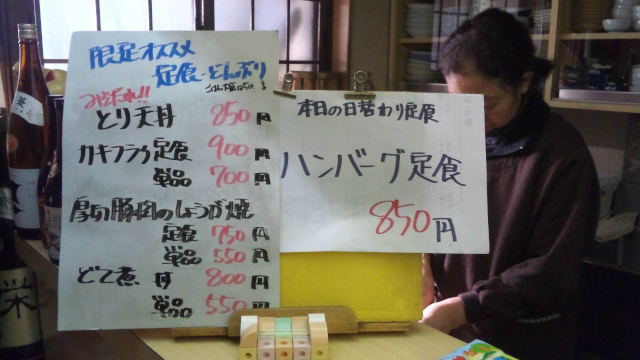 限定オススメ
定食・どんぶり
とり天丼 850円
カキフライ定食 900円
単品 700円
厚切豚肉のしょうが焼
定食 750円
単品 550円
どて煮 丼 800円
単品 550円
本日の日替わり定食
ハンバーグ定食
850円
栄